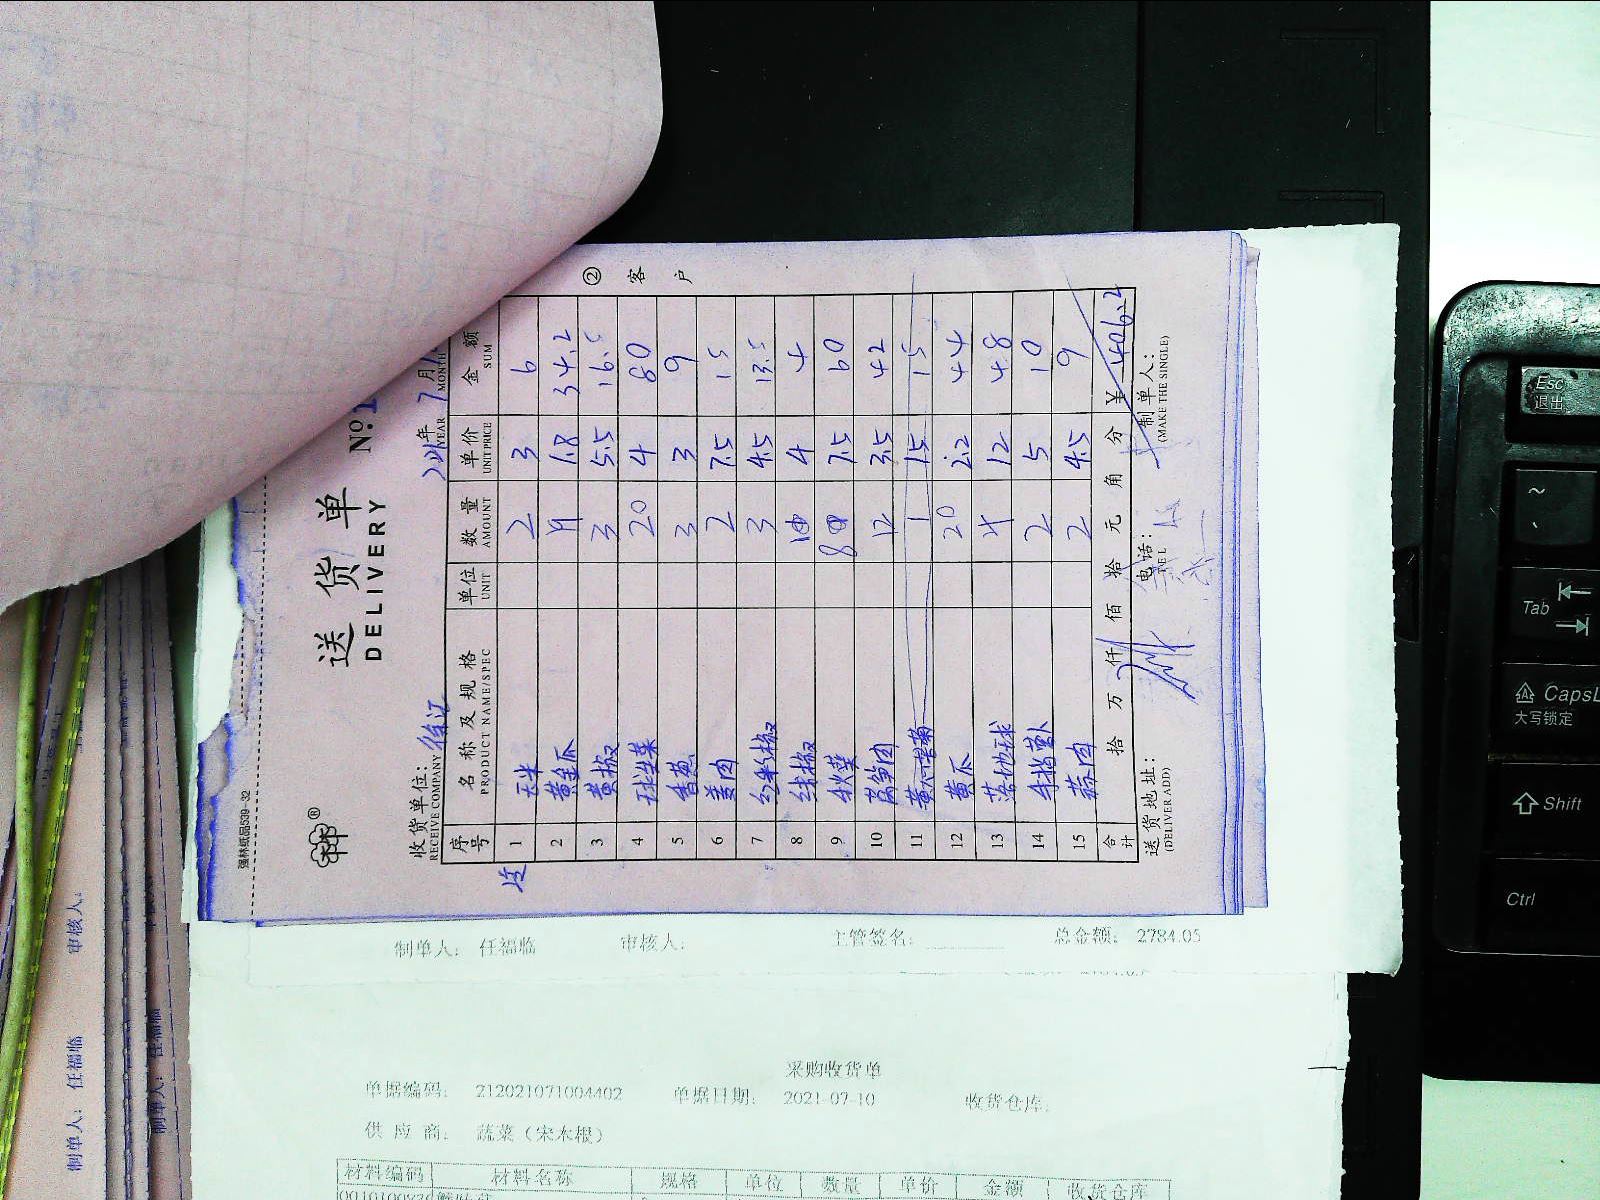 强林纸品539-32
送货单
DELIVERY
№:1
收货单位：
RECEIVE COMPANY
2021年 7月
YEAR MONTH
序号 名称及规格 单位 数量 单价 金额
PRODUCT NAME/SPEC UNIT AMOUNT UNIT PRICE SUM
②客户
1 玉米 2 3 6
2 黄金瓜 19 1.8 34.2
3 黄椒 3 5.5 16.5
4 球生菜 20 4 80
5 香葱 3 3 9
6 姜肉 2 7.5 15
7 红彩椒 3 4.5 13.5
8 线椒 1 4 4
9 秋葵 8 7.5 60
10 莴笋肉 12 3.5 42
11 1 15 15
12 黄瓜 20 2.2 44
13 4 12 48
14 2 5 10
15 蒜肉 2 4.5 9
合计 拾 万 仟 佰 拾 元 角 分 ¥ 406.2
送货地址： 电话： 制单人：
(DELIVER ADD) TEL (MAKE THE SINGLE)
制单人： 任福临 审核人： 主管签名： 总金额： 2784.05
采购收货单
单据编码： 212021071004402 单据日期： 2021-07-10 收货仓库：
供应商： 蔬菜（宋木根）
材料编码 材料名称 规格 单位 数量 单价 金额 收货仓库
制单人： 任福临 审核人：
制单人： 任福临
Esc
退出
~
Tab
CapsL
大写锁定
Shift
Ctrl